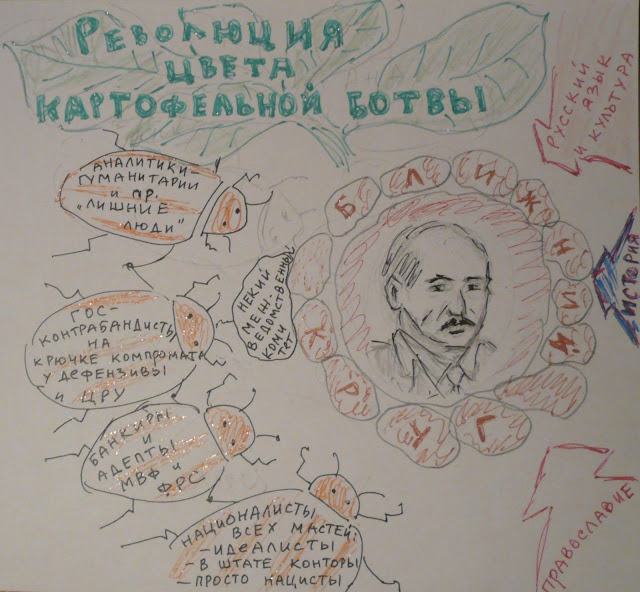 РЕВОЛЮЦИЯ
ЦВЕТА
КАРТОФЕЛЬНОЙ БОТВЫ
РУССКИЙ
ЯЗЫК
И КУЛЬТУРА
АНАЛИТИКИ-
ГУМАНИТАРИИ
И ПР.
„ЛИШНИЕ
ЛЮДИ"
БЛИЖНИЙ
КРУГ
ИСТОРИЯ
НЕКИЙ
МЕЖ-
ВЕДОМСТВЕННЫЙ
КОМИ
ТЕТ
ГОС-
КОНТРАБАНДИСТЫ
НА
КРЮЧКЕ КОМПРОМАТА
У ДЕФЕНЗИВЫ
И ЦРУ
БАНКИРЫ
И
АДЕПТЫ
МВФ И
ФРС
НАЦИОНАЛИСТЫ
ВСЕХ МАСТЕЙ:
- ИДЕАЛИСТЫ
- В ШТАТЕ КОНТОРЫ
- ПРОСТО НАЦИСТЫ
ПРАВОСЛАВИЕ